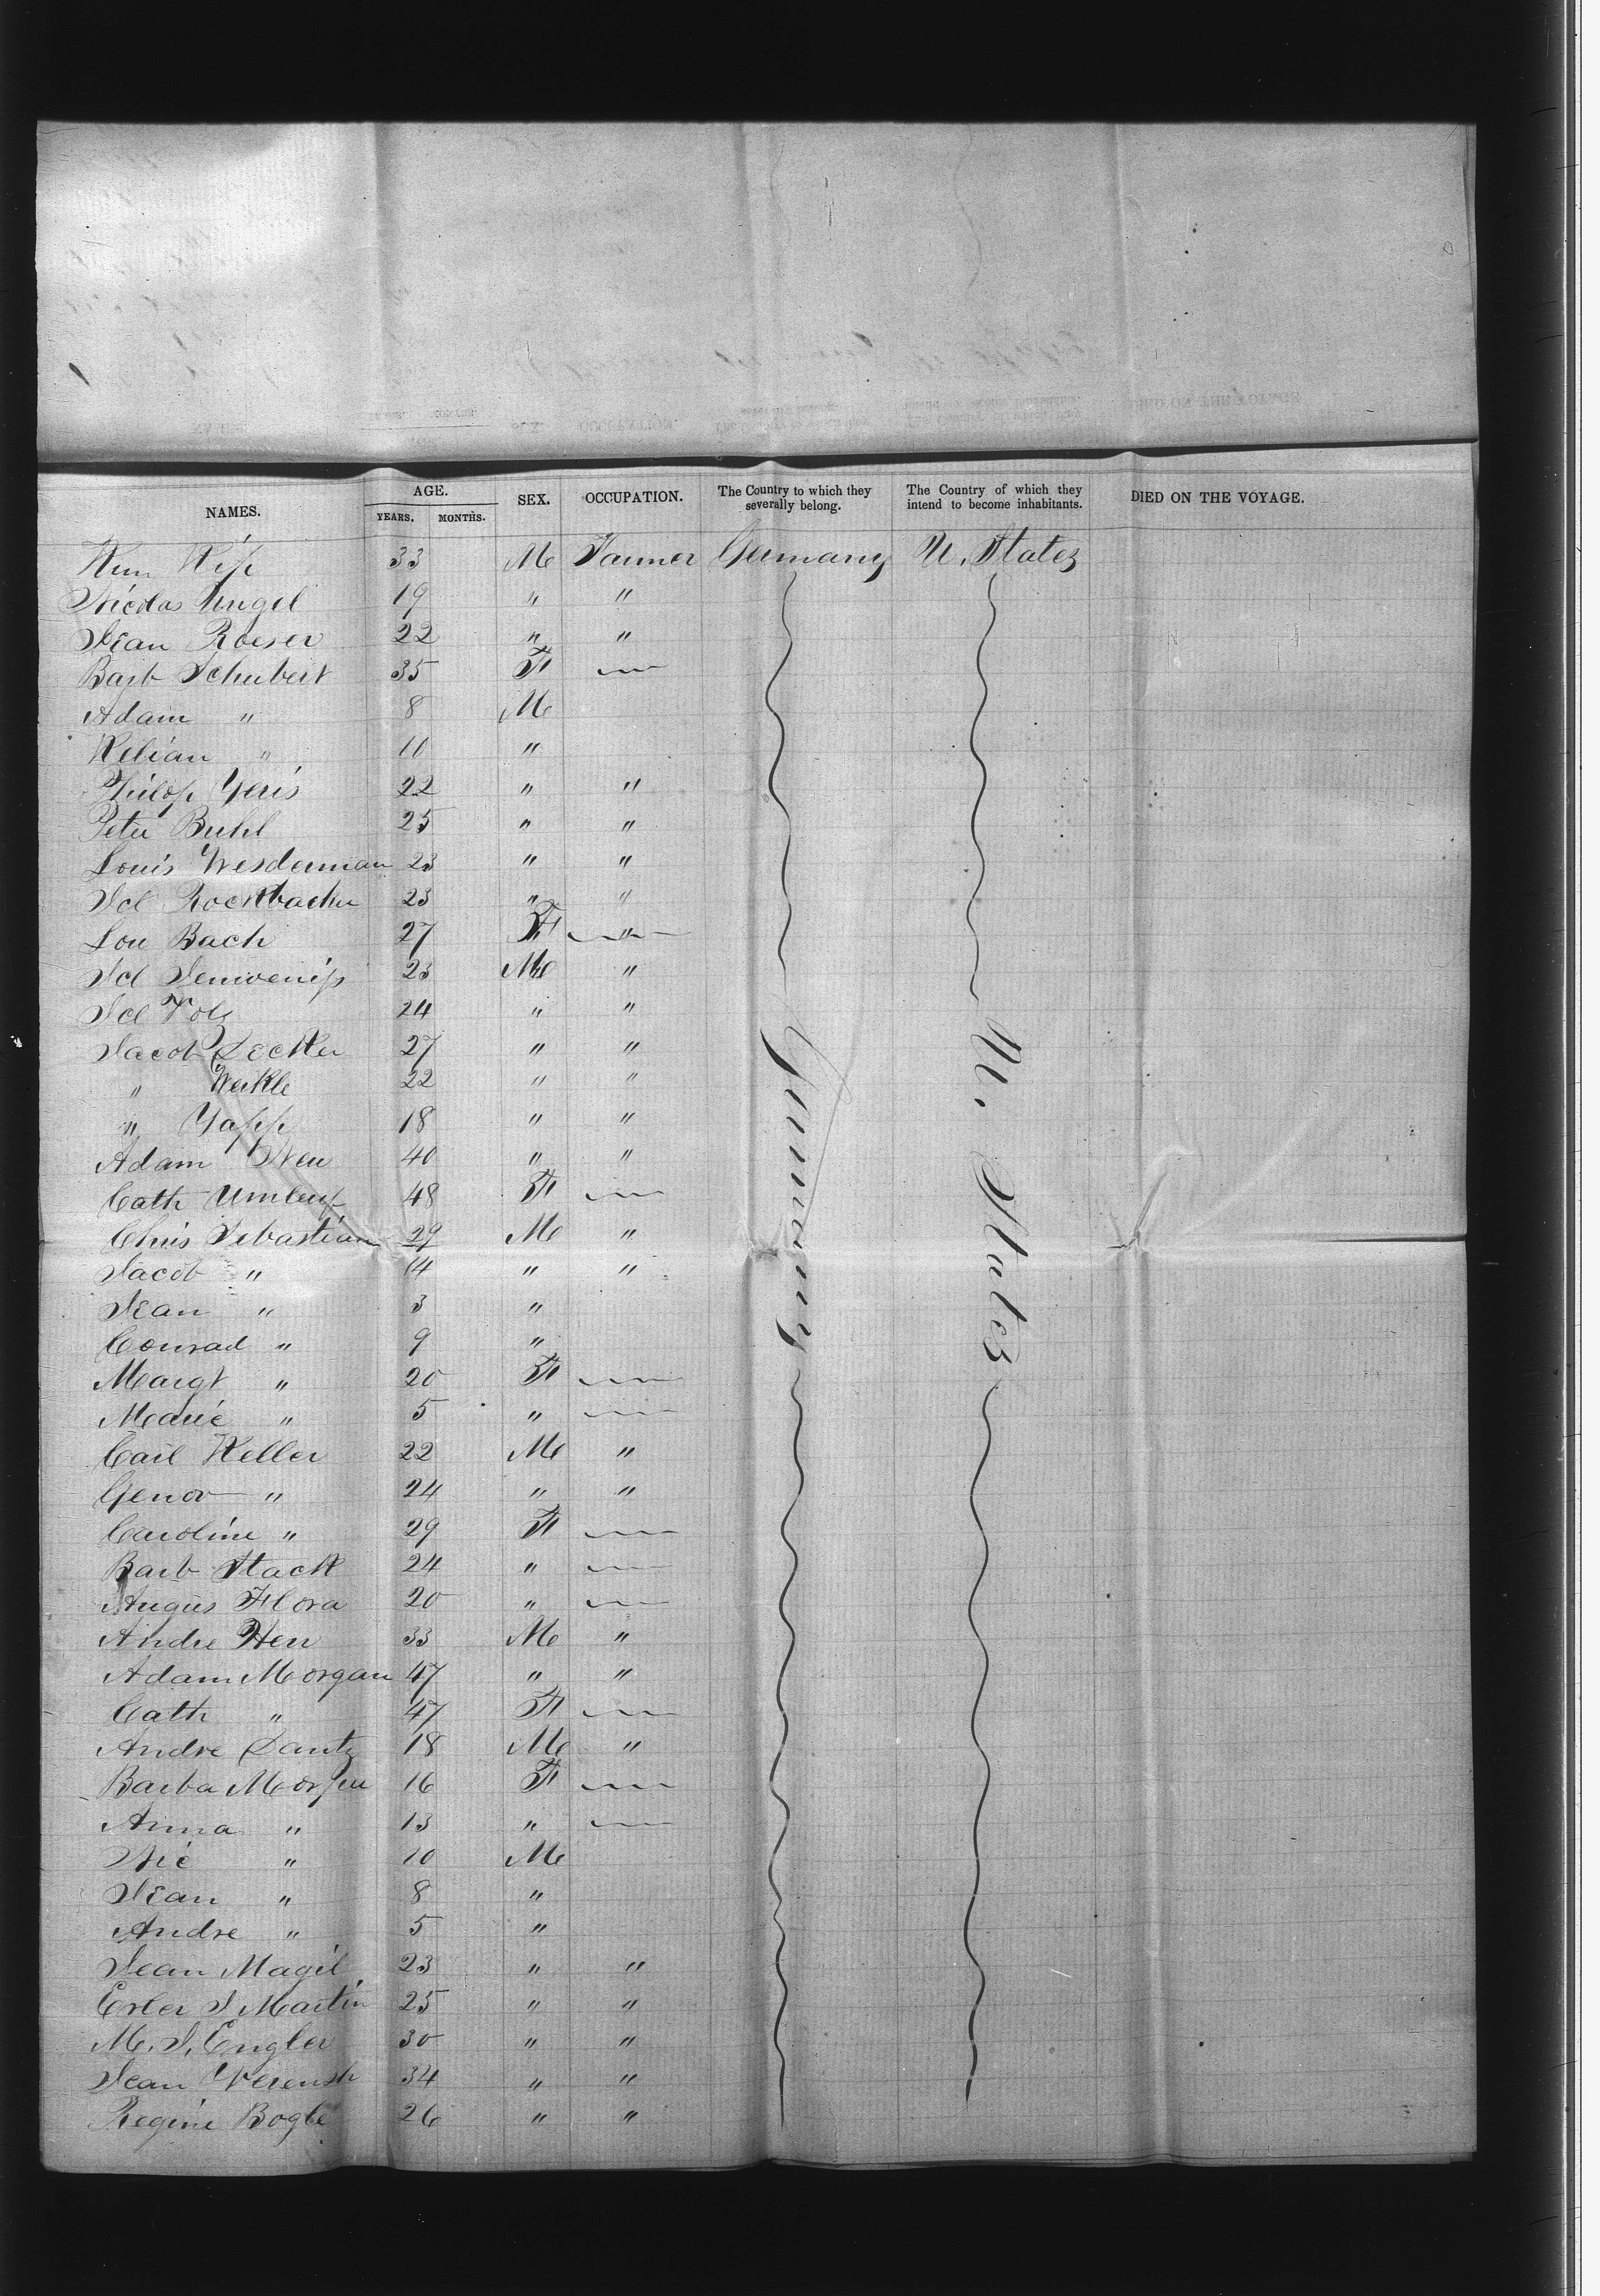 NAMES. AGE. SEX. OCCUPATION. The Country to which they severally belong. The Country of which they intend to become inhabitants. DIED ON THE VOYAGE.
YEARS. MONTHS.
33 M Farmer Germany U. States
Nicolas 19 " "
Jean Roeser 22 " "
Barb Schubert 35 F —
Adam " 8 M
Kilian " 10 "
Philop 22 " "
Peter Buhl 25 " "
Louis Wesderman 23 " "
Jcl 23 " "
Lou Bach 27 F "
Jcl 23 M "
Jcl Volz 24 " "
Jacob Decker 27 " "
" Weikle 22 " "
" Yapp 18 " "
Adam 40 " "
Cath Umlauf 48 F —
Chris Sebastian 29 M "
Jacob " 14 " "
Jean " 3 "
Conrad " 9 "
Margt " 20 F —
Marie " 5 " —
Carl Keller 22 M "
Genov " 24 " "
Caroline " 29 F —
Barb Stack 24 " —
Augus Flora 20 " —
Andre Hen 33 M "
Adam Morgan 47 " "
Cath " 47 F —
Andre Lantz 18 M "
Barba 16 F —
Anna " 13 " —
Nic " 10 M
Jean " 8 "
Andre " 5 "
Jean Magil 23 " "
Exler J Martin 25 " "
M. J. Engler 30 " "
Jean 34 " "
Regine Bogle 26 " "
Germany
U. States